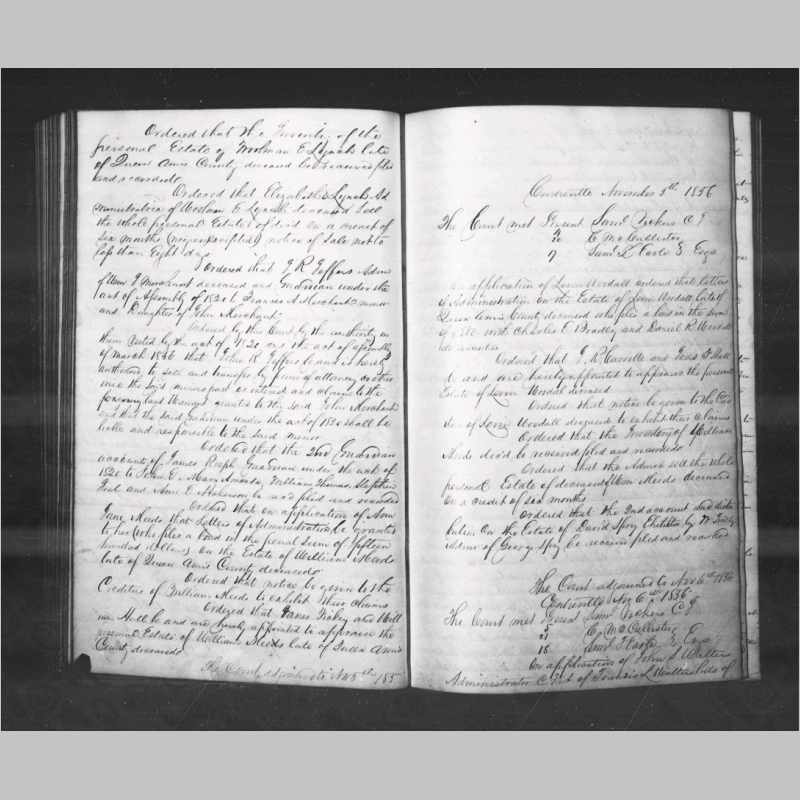 Ordered that the Inventory of the
personal Estate of Woolman E Lynch late
of Queen Anns County deceased be received filed
and recorded
Ordered that Elizabeth Lynch Ad
ministratrix of Woolman E Lynch deceased sell
the whole personal Estate of dec'd on a credit of
six months (negroes excepted) notice of sale not to
less than Eight days
Ordered that J R Jeffers Admr
of Wm J Merchant deceased and Guardian under the
act of Assembly of 1820 to Frances A Merchant minor
and Daughter of John Merchant
Ordered by this Court by the authority in
them vested by the act of 1820 and the act of assembly
of March 1846 that John R Jeffers be and is hereby
authorized to sell and transfer by power of attorney or other
wise the said minors part or interest and claim to the
bounty land Warrant granted to the said John Merchant
and that the said guardian under the act of 1820 shall be
liable and responsible to the said minor
Ordered that the 2nd Guardian
account of James Roseph Guardian under the act of
1820 to John E. Mary Amanda, William Thomas, Stephen
and Ann E. be rec'd filed and recorded
Ordered that on application of Ann
Jane Meeds that Letters of Administration be granted
to her (who files a bond in the penal sum of fifteen
hundred dollars) on the Estate of William Meeds
late of Queen Anns County deceased
Ordered that notice be given to the
Creditors of William Meeds to exhibit their claims
Ordered that James and Will
m Hall be and are hereby appointed to appraise the
personal Estate of William Meeds late of Queen Ann's
County deceased
The Court adjourned to Nov 5th 185
Centreville November 5th 1856
The Court met Present Saml C J
" C McCallister
" Saml T Esqr
On application of Ordered that letters
of Administration on the Estate of late of
Queen Anns County deceased who files a bond in the sum
of with Charles E Bradley and Daniel R
as sureties
Ordered that J. R. and
be and are hereby appointed to appraise the personal
Estate of deceased
Ordered that notice be given to the Cre
ditors of deceased to exhibit their claims
Ordered that the Inventory of William
Meeds dec'd be received filed and recorded
Ordered that the Admrx sell the whole
personal Estate of deceased Wm Meeds deceased
on a credit of six months
Ordered that the 2nd account and distri
bution on the Estate of David Spry Exhibited by W
Admr of George Spry be received filed and recorded
The Court adjourned to Nov 6th 1856
Centreville Nov 6th 1856
The Court met Present Saml C J
" C McCallister
" Saml T Esqr
On application of John S Walters
Administrator of Francis L Walters late of